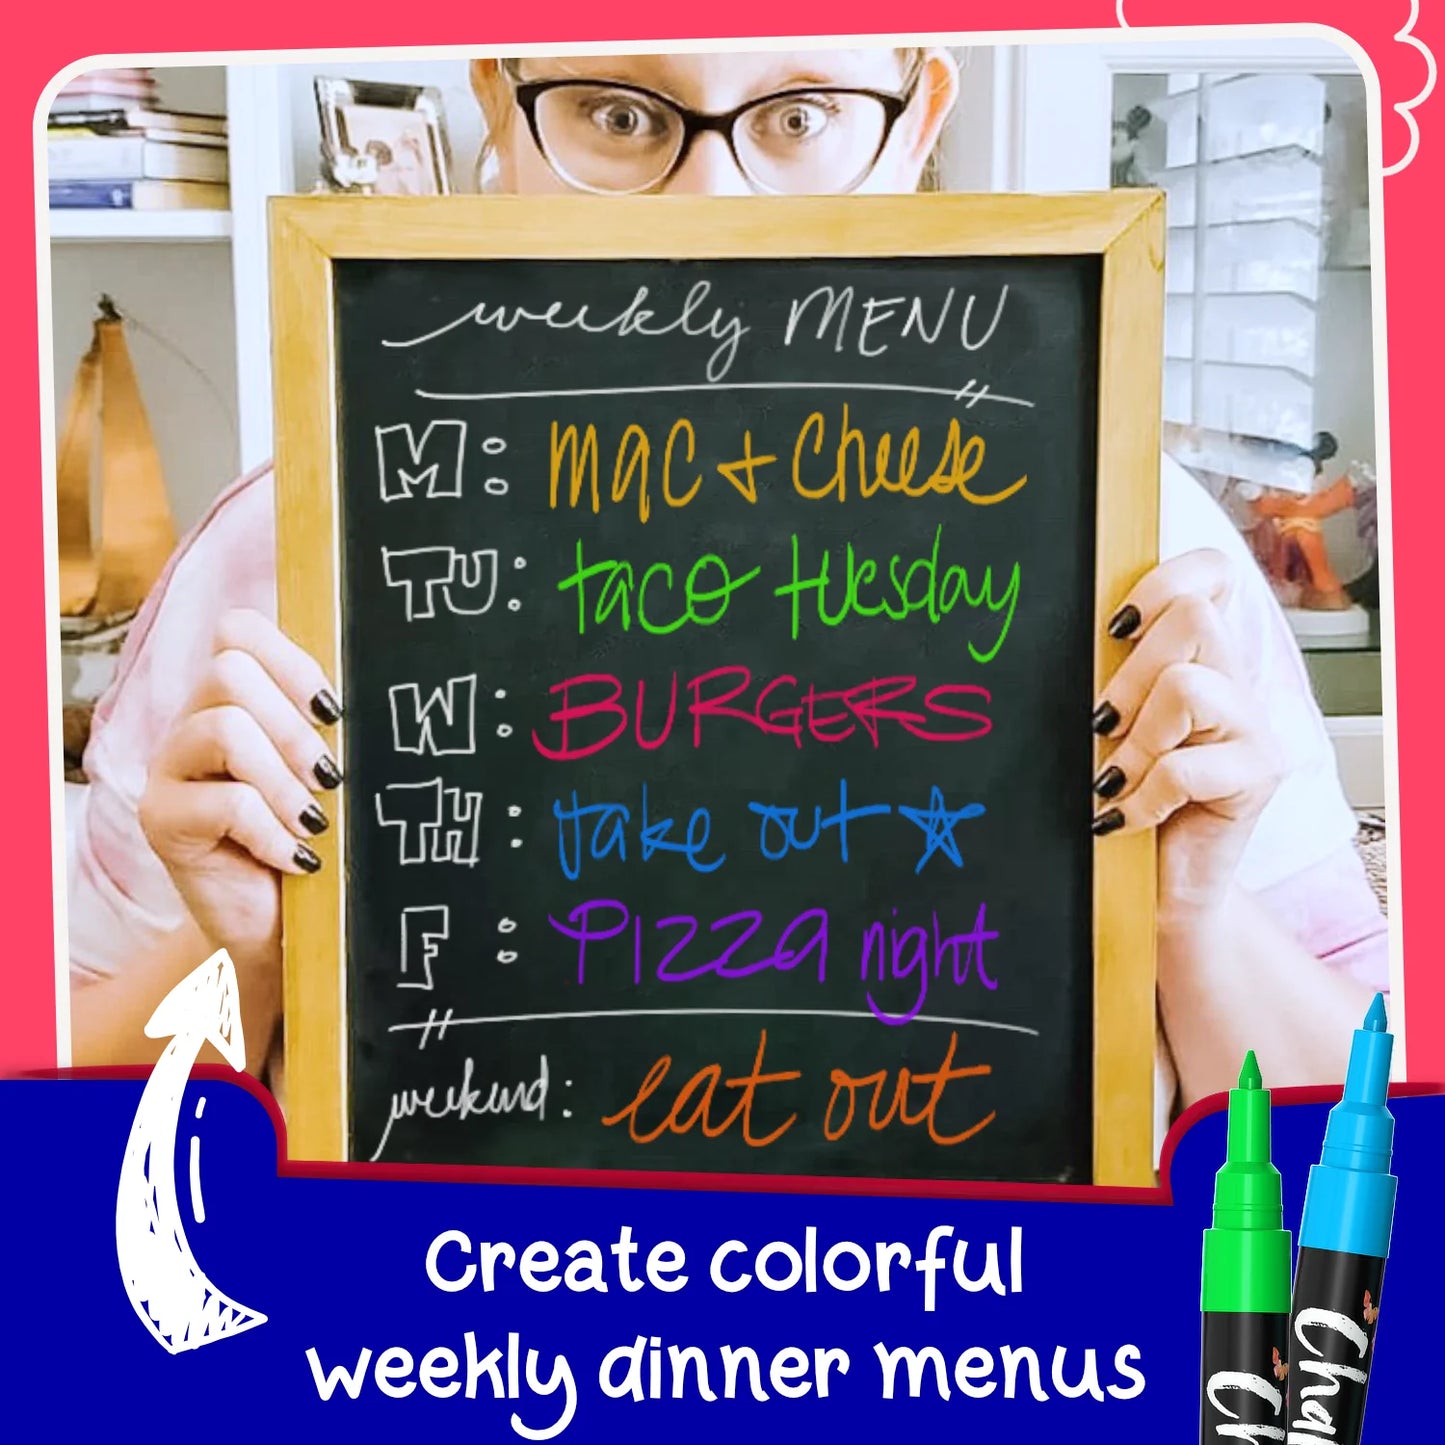 weekly MENU
M: mac + cheese
TU: taco tuesday
W: BURGERS
TH: take out
F: PIZZA night
weekend: eat out
Create colorful
weekly dinner menus